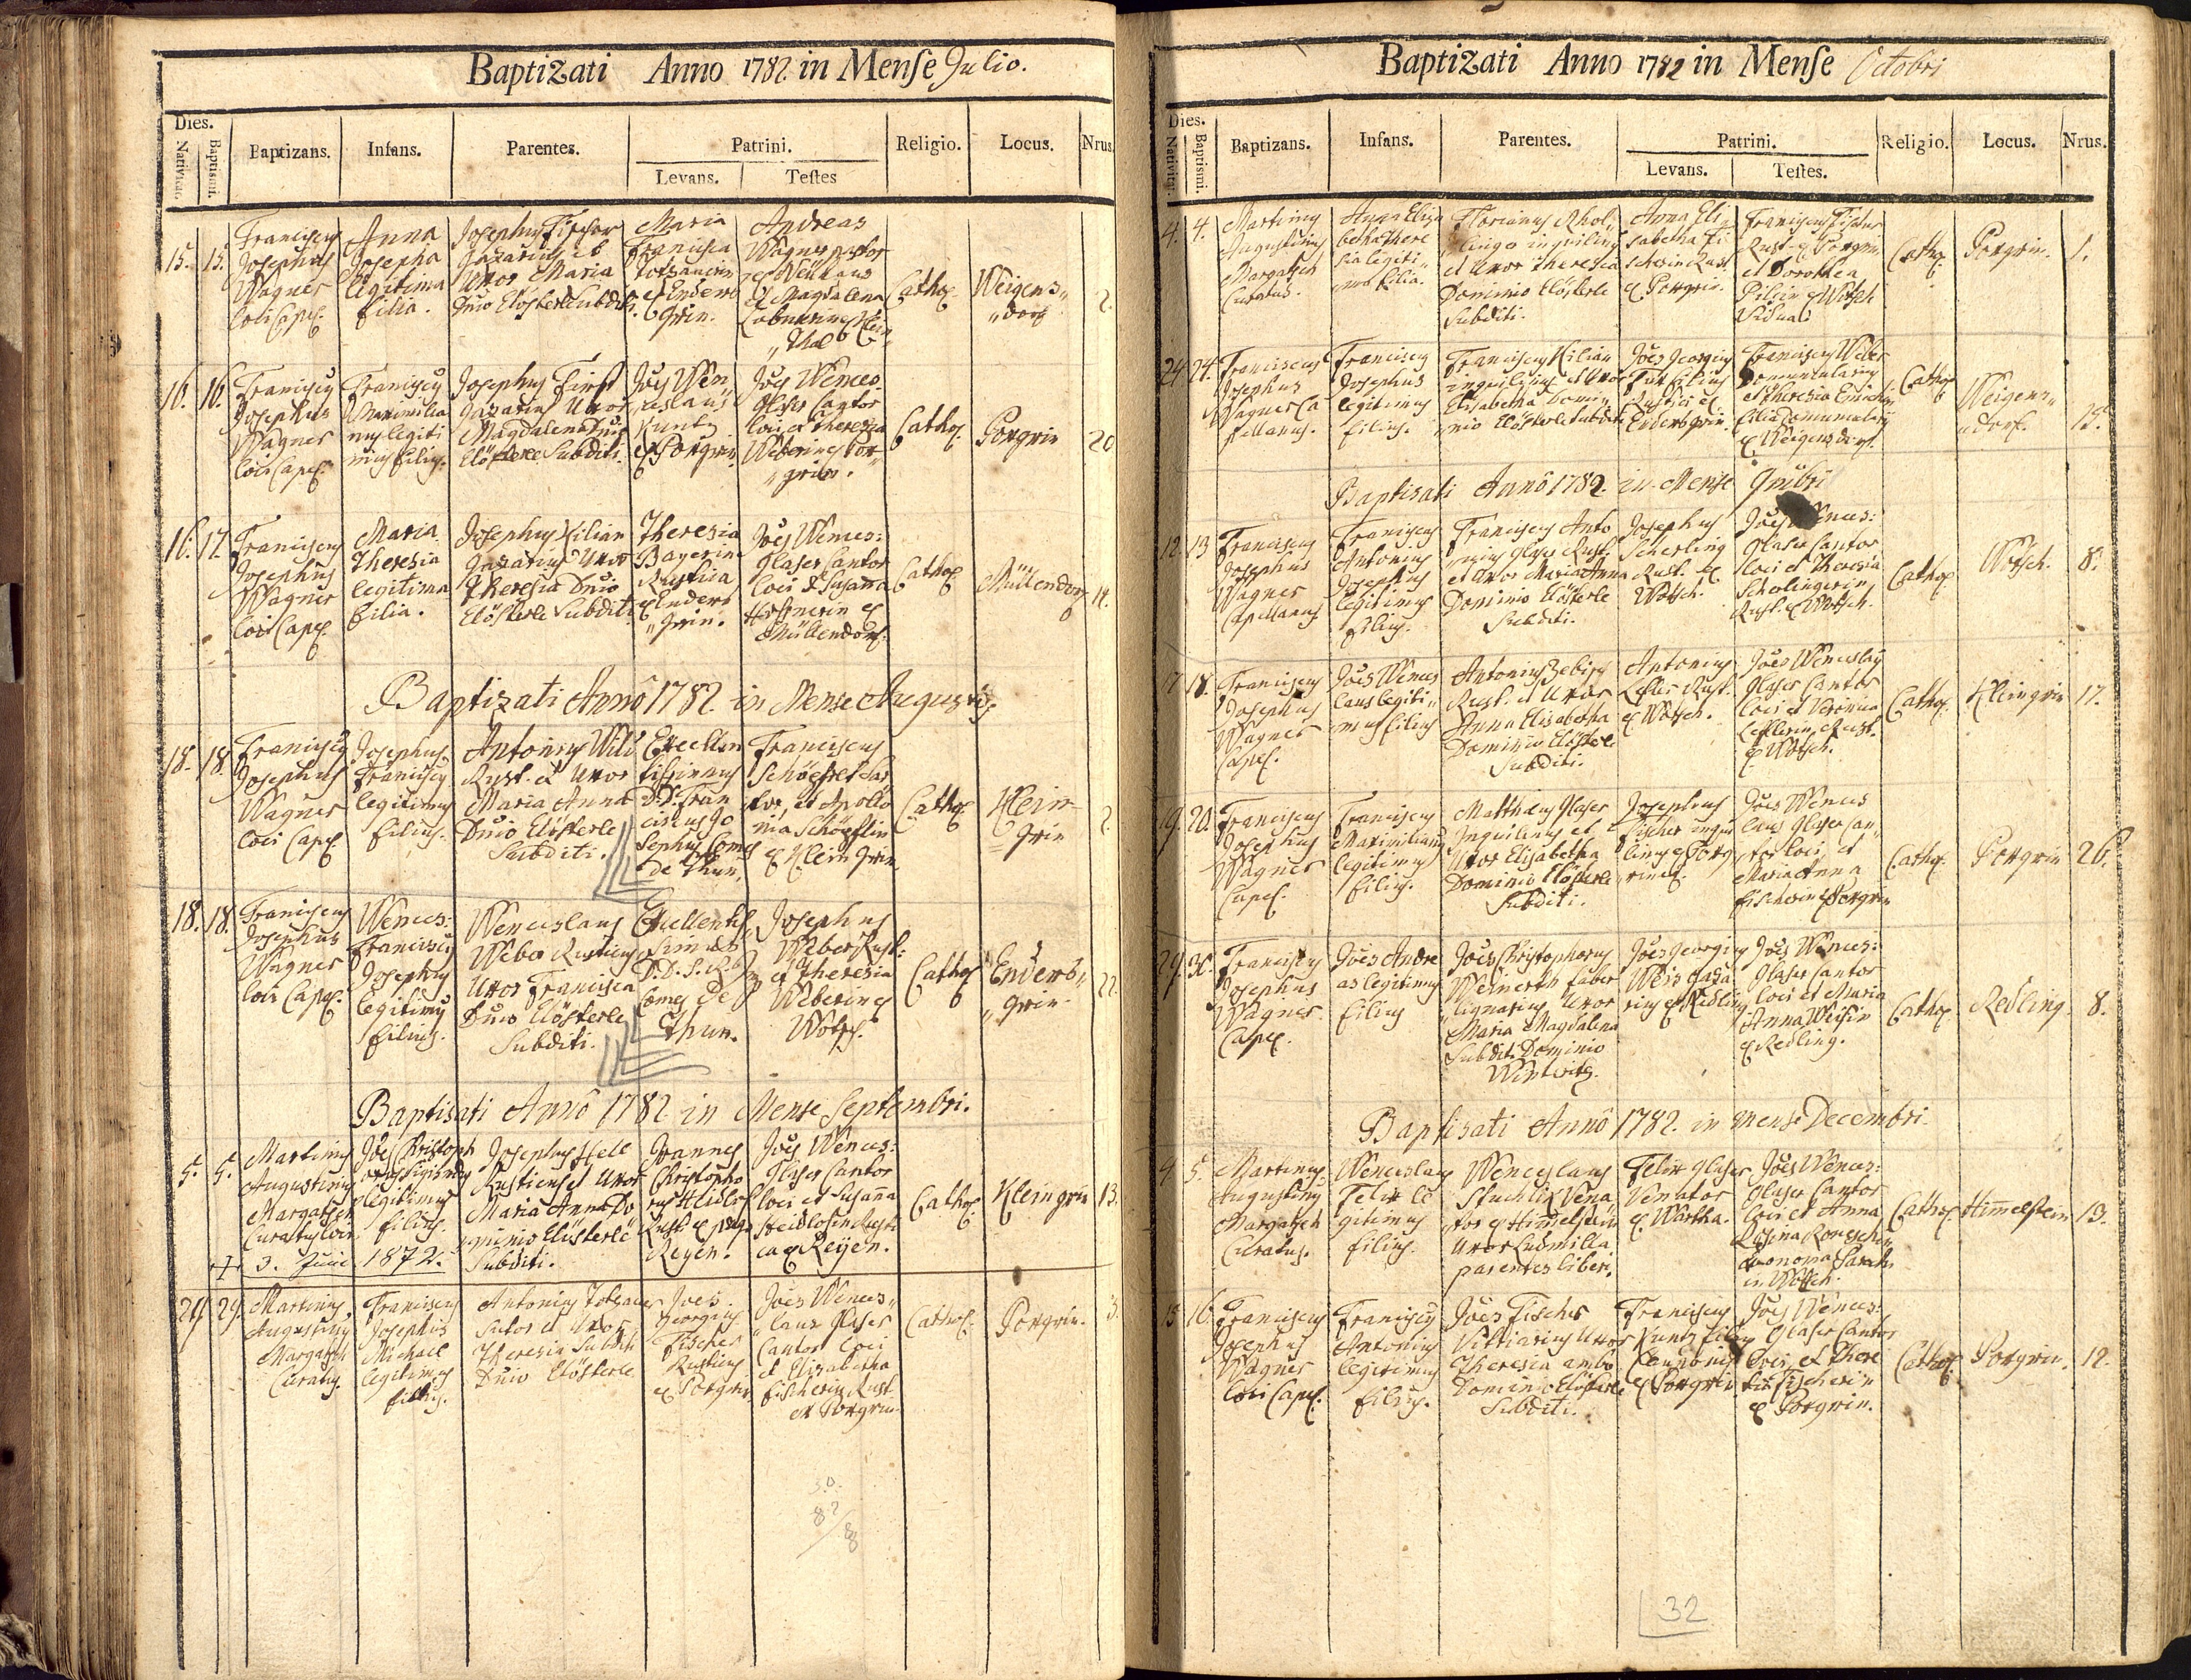 Baptizati Anno 1782. in Mense Julio.
Dies.
Nativitat.
Baptismi.
Baptizans.
Infans.
Parentes.
Patrini.
Levans.
Testes
Religio.
Locus.
Nrus.
15.
15.
Franciscus
Josephus
Wagner
loci Capel.
Anna
Josepha
legitima
filia.
Josephus Fischer
et
Uxor Maria
Dnio Clösterle Subditi.
Maria
Francisca
ex Enders
grün.
Andreas
Wagner
et Magdalena
Thal
Cathol.
Weigens„
„dorf
2.
16.
16.
Franciscus
Josephus
Wagner
loci Capel.
Franciscus
Maximilia
nus legiti
mus filius.
Josephus
Uxor
Magdalena Dnio
Clösterle Subditi.
Joes Wen
ceslaus
Kuntz
ex Pürgrin
Joes Wences:
Glaser Cantor
loci, et Theresia
Weberin ex Pur
„grin.
Cathol.
Porgrin
20
16.
17.
Franciscus
Josephus
Wagner
loci Capel.
Maria
Theresia
legitima
filia.
Josephus Kilian
Uxor
Theresia Dnio
Clösterle Subditi.
Theresia
Bayerin
Rustica
ex Enders
„grin.
Joes Wences:
Glaser Cantor
loci et Susanna
ex
Müllendorf.
Cathol.
Müllendorf
Baptizati Annô 1782. in Mense Augusti.
18.
18.
Franciscus
Josephus
Wagner
loci Capel.
Josephus
Franciscus
legitimus
filius.
Antonius
Rust. et Uxor
Maria Anna
Dnio Clösterle
Subditi.
Excellen
tissimus
D. D. Fran
ciscus Jo
sephus Comes
de Thun.
Franciscus
et Apollo
nia
ex Klein grin.
Cathol.
Klein
grin
2.
18.
18.
Franciscus
Josephus
Wagner
loci Capel.
Wences:
Franciscus
Josephus
legitimus
filius.
Wenceslaus
Weber Rusticus
Uxor Francisca
Dnio Clösterle
Subditi.
Excellentis
simus
Comes de
Thun.
Josephus
Weber Rust:
et Theresia
Weberin ex
Wotsch.
Cathol.
Enders„
„grin.
22.
Baptisati Annô 1782 in Mense Septembri.
5.
5.
Martinus
Augustinus
Margatsch
Curatus loci
Joes Christoph
legitimus
filius.
Josephus
Rusticus et Uxor
Maria Anna Do
minio Clösterle
Subditi.
Joannes
Christopho
rus
Rust. ex
Reyen.
Joes Wences:
Glaser Cantor
loci et Susanna
ca ex Reyen.
Cathol.
Kleingrin
13.
+ 3. Juni 1872.
29.
29.
Martinus
Augustinus
Margatsch
Curatus.
Franciscus
Josephus
Michael
legitimus
filius.
Antonius
Sutor et Uxor
Theresia Subditi
Dnio Clösterle
Joes
Georgius
Fischer
Rusticus
ex Porgrin
Joes Wences„
„laus Glaser
Cantor loci
et Elisabetha
Fischerin Rust.
ex Porgrin.
Cathol.
Porgrin.
3.
Baptizati Anno 1782 in Mense Octobri
Dies.
Nativitat.
Baptismi.
Baptizans.
Infans.
Parentes.
Patrini.
Levans.
Testes.
Religio.
Locus.
Nrus.
4.
4.
Martinus
Augustinus
Margatsch
Curatus.
Anna Elisa
betha There
sia legiti„
ma filia.
Florianus
inquilinus
et Uxor Theresia
Dominio Clösterle
Subditi.
Anna Eli„
sabetha Fi
scherin Rust.
ex Porgrin.
Franciscus Fischer
Rust. ex Porgrin
et Dorothea
ex Wotsch
Vidua.
Cathol.
Porgrin.
1.
24
24.
Franciscus
Josephus
Wagner Ca
pellanus.
Franciscus
Josephus
legitimus
filius.
Franciscus Kilian
inquilinus et Uxor
Elisabetha Domi„
nio Clösterle Subditi
Joes Georgius
Rustici ex
Endersgrin.
Franciscus Weber
et Theresia
filia
ex Weigensdorf.
Cathol.
Weigens„
„dorf.
15.
Baptisati Annô 1782. in Mense 9mbri
12.
13
Franciscus
Josephus
Wagner
Capellanus
Franciscus
Antonius
Josephus
legitimus
filius.
Franciscus Anto
nius Glaser Rust.
et Uxor Maria Anna
Dominio Clösterle
Subditi.
Josephus
Scherling
Rust. ex
Wotsch.
Joes Wences:
Glaser Cantor
loci et Theresia
Scherlingerin
Rust. ex Wotsch.
Cathol.
Wotsch.
8.
17
18.
Franciscus
Josephus
Wagner
Capel.
Joes Wences
laus legiti„
mus filius
Antonius
Rust. et Uxor
Anna Elisabetha
Dominio Clösterle
Subditi.
Antonius
Lefler Rust.
ex Wotsch.
Joes Wenceslaus
Glaser Cantor
loci et Veronica
Leflerin Rust.
ex Wotsch.
Cathol.
Kleingrin
17.
19.
20.
Franciscus
Josephus
Wagner
Capel.
Franciscus
Maximilianus
legitimus
filius.
Matthaeus Glaser
Inquilinus et
Uxor Elisabetha
Dominio Clösterle
Subditi.
Josephus
Fischer inqui
linus ex Porg
rin.
Joes Wences
laus Glaser Can„
tor loci, et
Maria Anna
Fischerin ex Porgrin
Cathol.
Porgrin
26.
29.
30.
Franciscus
Josephus
Wagner
Capel.
Joes Andre
as legitimus
filius
Joes Christophorus
Weinerth faber
lignarius Uxor
Maria Magdalena
Subditi Dominio
Wintritz.
Joes Georgius
Weis
ex Redling
Joes Wences:
Glaser Cantor
loci et Maria
Anna Weisin
ex Redling.
Cathol.
Redling.
8.
Baptisati Annô 1782. in mense Decembri.
4
5.
Martinus
Augustinus
Margatsch
Curatus.
Wenceslaus
Felix le
gitimus
filius.
Wenceslaus
Stuchlik Vena
tor ex Himmelstein
Uxor Ludmilla
parentes liberi.
Felix Glaser
Venator
ex Wartha.
Joes Wences:
Glaser Cantor
loci et Anna
Rosina
in Wotsch.
Cathol.
Himmelstein
13.
15
16.
Franciscus
Josephus
Wagner
loci Capel.
Franciscus
Antonius
legitimus
filius.
Joes Fischer
Uxor
Theresia ambo
Dominio Clösterle
Subditi.
Franciscus
Kuntz
ex Porgrin
Joes Wences:
Glaser Cantor
loci, et There
sia Fischerin
ex Porgrin.
Cathol.
Porgrin.
12.
32